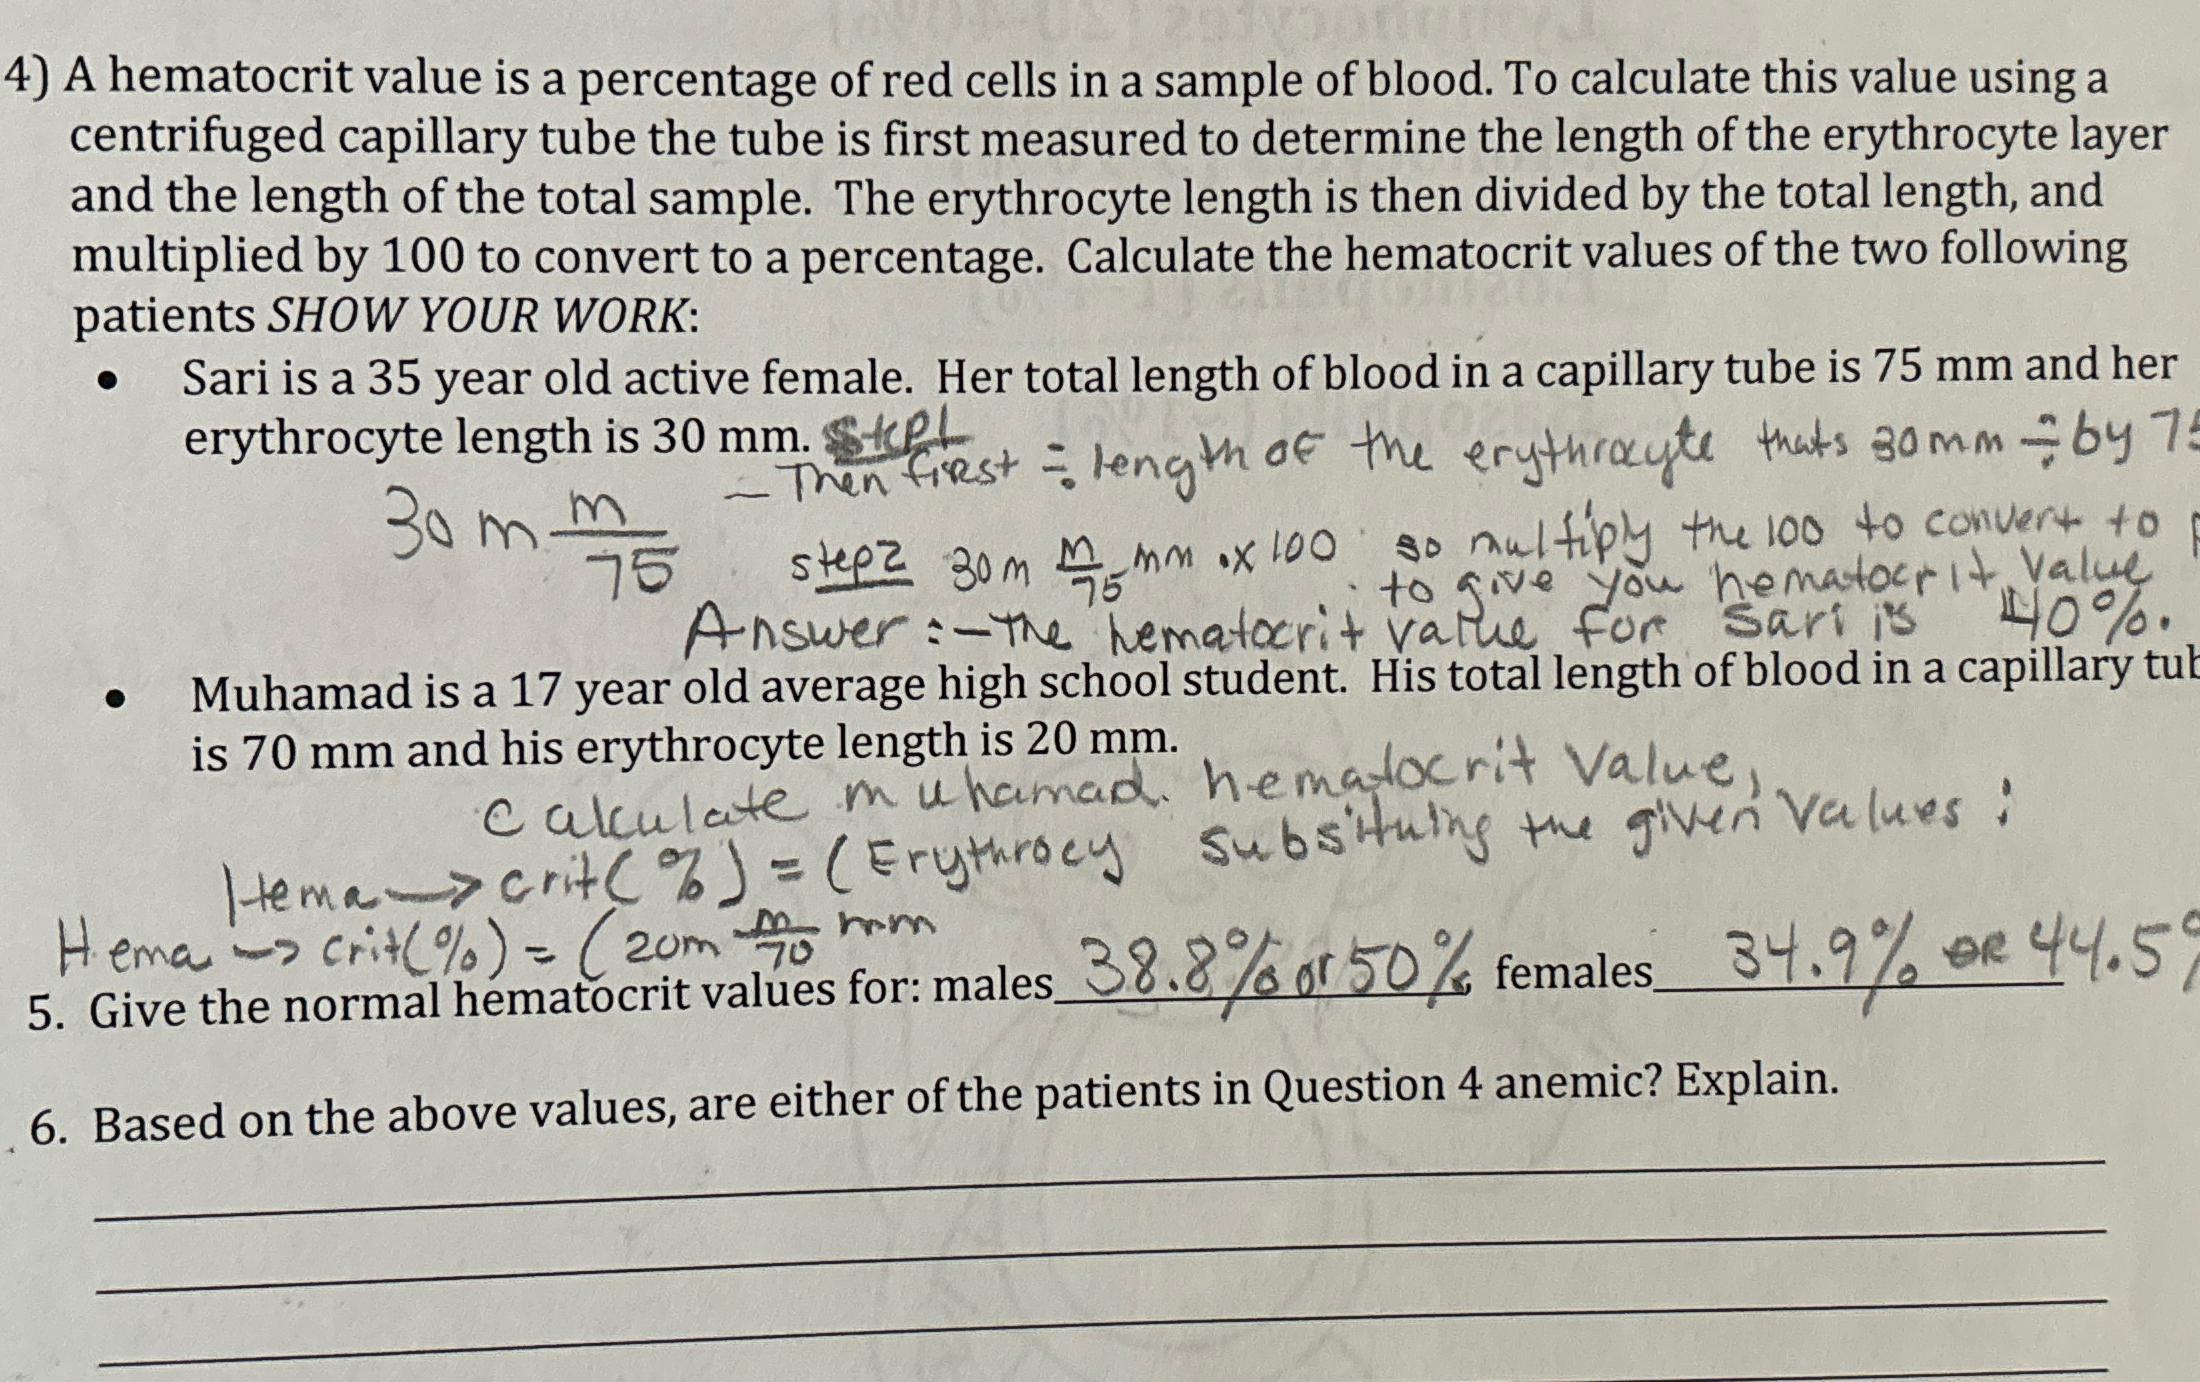 4) A hematocrit value is a percentage of red cells in a sample of blood. To calculate this value using a
centrifuged capillary tube the tube is first measured to determine the length of the erythrocyte layer
and the length of the total sample. The erythrocyte length is then divided by the total length, and
multiplied by 100 to convert to a percentage. Calculate the hematocrit values of the two following
patients SHOW YOUR WORK:
• Sari is a 35 year old active female. Her total length of blood in a capillary tube is 75 mm and her
erythrocyte length is 30 mm. Step1
- Then first ÷ length of the erythrocyte thats 30mm ÷ by 75
30 m m/75
step2 30m m/75 mm .x 100 so multiply the 100 to convert to
to give you hematocrit value
Answer :- The hematocrit value for Sari is 40%.
• Muhamad is a 17 year old average high school student. His total length of blood in a capillary tub
is 70 mm and his erythrocyte length is 20 mm.
Calculate muhamad. hematocrit Value,
Hema → crit(%) = (Erythrocy subsituing the given Values :
Hema → crit(%) = (20m m/70 mm
5. Give the normal hematocrit values for: males 38.8% or 50% females 34.9% OR 44.5%
6. Based on the above values, are either of the patients in Question 4 anemic? Explain.